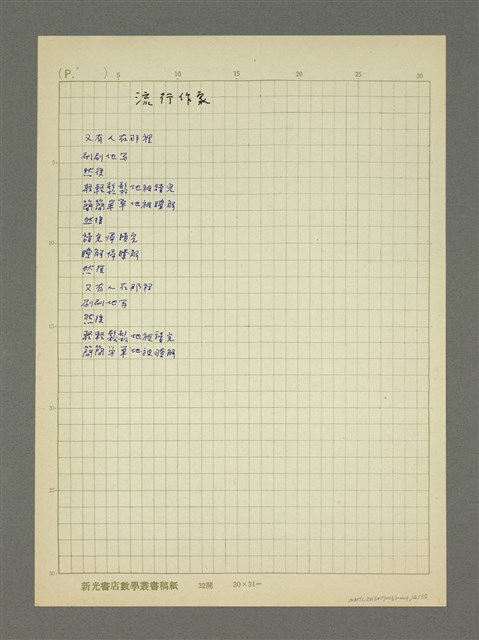 (P. )
5 10 15 20 25 30
流行作家
又有人在那裡
刷刷地写
然後
輕輕鬆鬆地被讀完
簡簡單單地被瞭解
然後
讀完歸讀完
瞭解歸瞭解
然後
又有人在那裡
刷刷地写
然後
輕輕鬆鬆地被讀完
簡簡單單地被瞭解
新光書店數學叢書稿紙 32開 30×31=